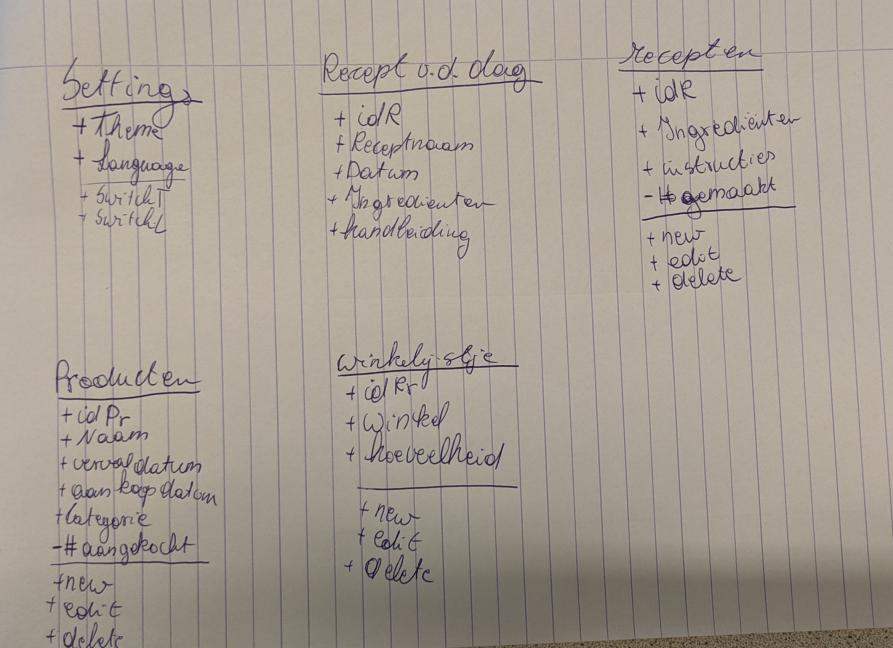 Settings
+ Theme
+ Language
+ SwitchT
+ SwitchL
Recept v.d. dag
+ idR
+ Receptnaam
+ Datum
+ Ingredienten
+ handleiding
recepten
+ idR
+ Ingrediënten
+ instructies
- # gemaakt
+ new
+ edit
+ delete
Producten
+ idPr
+ Naam
+ vervaldatum
+ aankoopdatum
+ Categorie
- # aangekocht
+ new
+ edit
+ delete
winkelijstje
+ idPr
+ Winkel
+ hoeveelheid
+ new
+ edit
+ delete